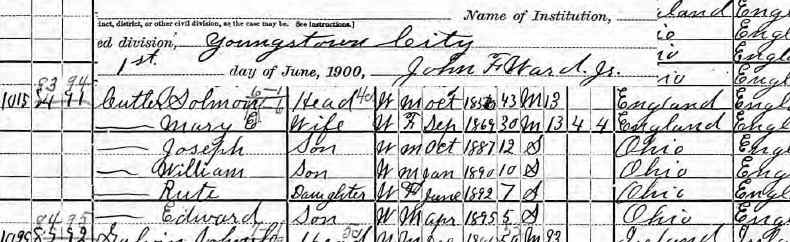 Name of Institution, land Engl
inct, district, or other civil division, as the case may be. See instructions.] io Engl
ed division, Youngstown City io Engl
1st. day of June, 1900, John F Ward. Jr. io Engl
83 94
1015 Cutler Solmon Head W M Oct 43 M 13 England Engl
— Mary E Wife W F Sep 1869 30 M 13 4 4 England Engl
— Joseph Son W M Oct 1887 12 S Ohio Eng
— William Son W M Jan 1890 10 S Ohio Eng
— Rute Daughter W F June 1892 7 S Ohio Eng
— Edward Son W M Apr 1895 5 S Ohio Eng